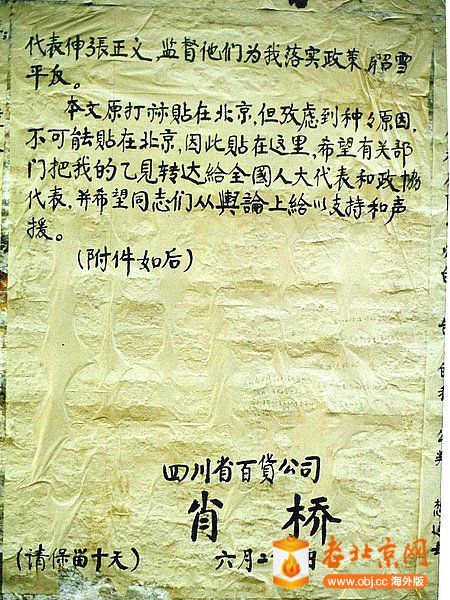 代表伸張正义,监督他们为我落实政策,昭雪
平反。
本文原打祘貼在北京,但攷虑到种々原因,
不可能貼在北京,因此貼在这里,希望有关部
门把我的乙見转达給全國人大代表和政協
代表,并希望同志们从舆論上給以支持和声
援。
(附件如后)
四川省百貨公司
肖 桥
(请保畄十天) 六月二 日
老北京网
www.obj.cc 海外版